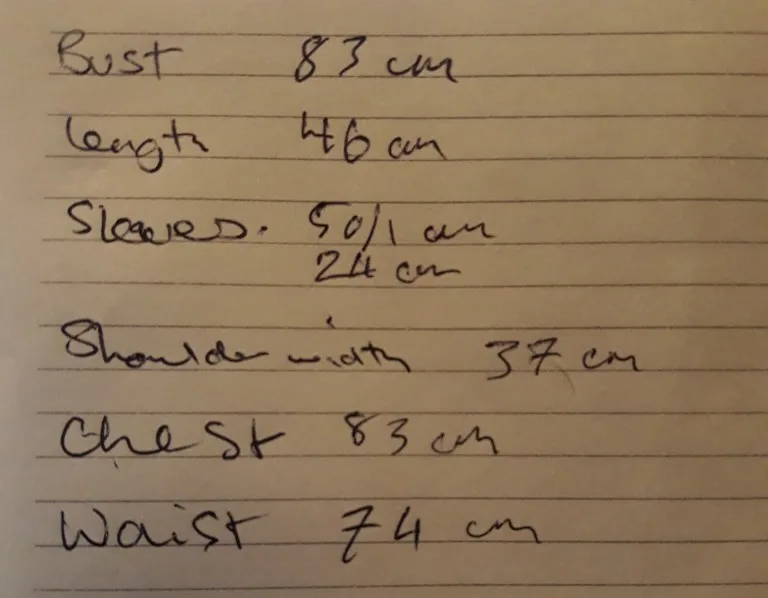 Bust 83 cm
length 46 cm
Sleeves. 50/1 cm
24 cm
Shoulder width 37 cm
Chest 83 cm
Waist 74 cm